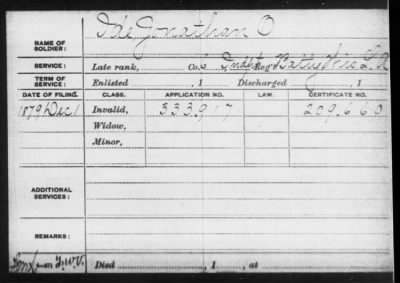 Ide Jonathan O
NAME OF SOLDIER:
SERVICE: Late rank, Co. 6 Indpt Reg Batty Wis. L. A
TERM OF SERVICE: Enlisted , 1 Discharged , 1
DATE OF FILING. CLASS. APPLICATION NO. LAW. CERTIFICATE NO.
1879 Dec 1 Invalid, 333.917 209.660
Widow,
Minor,
ADDITIONAL SERVICES:
REMARKS:
Died , 1 , at